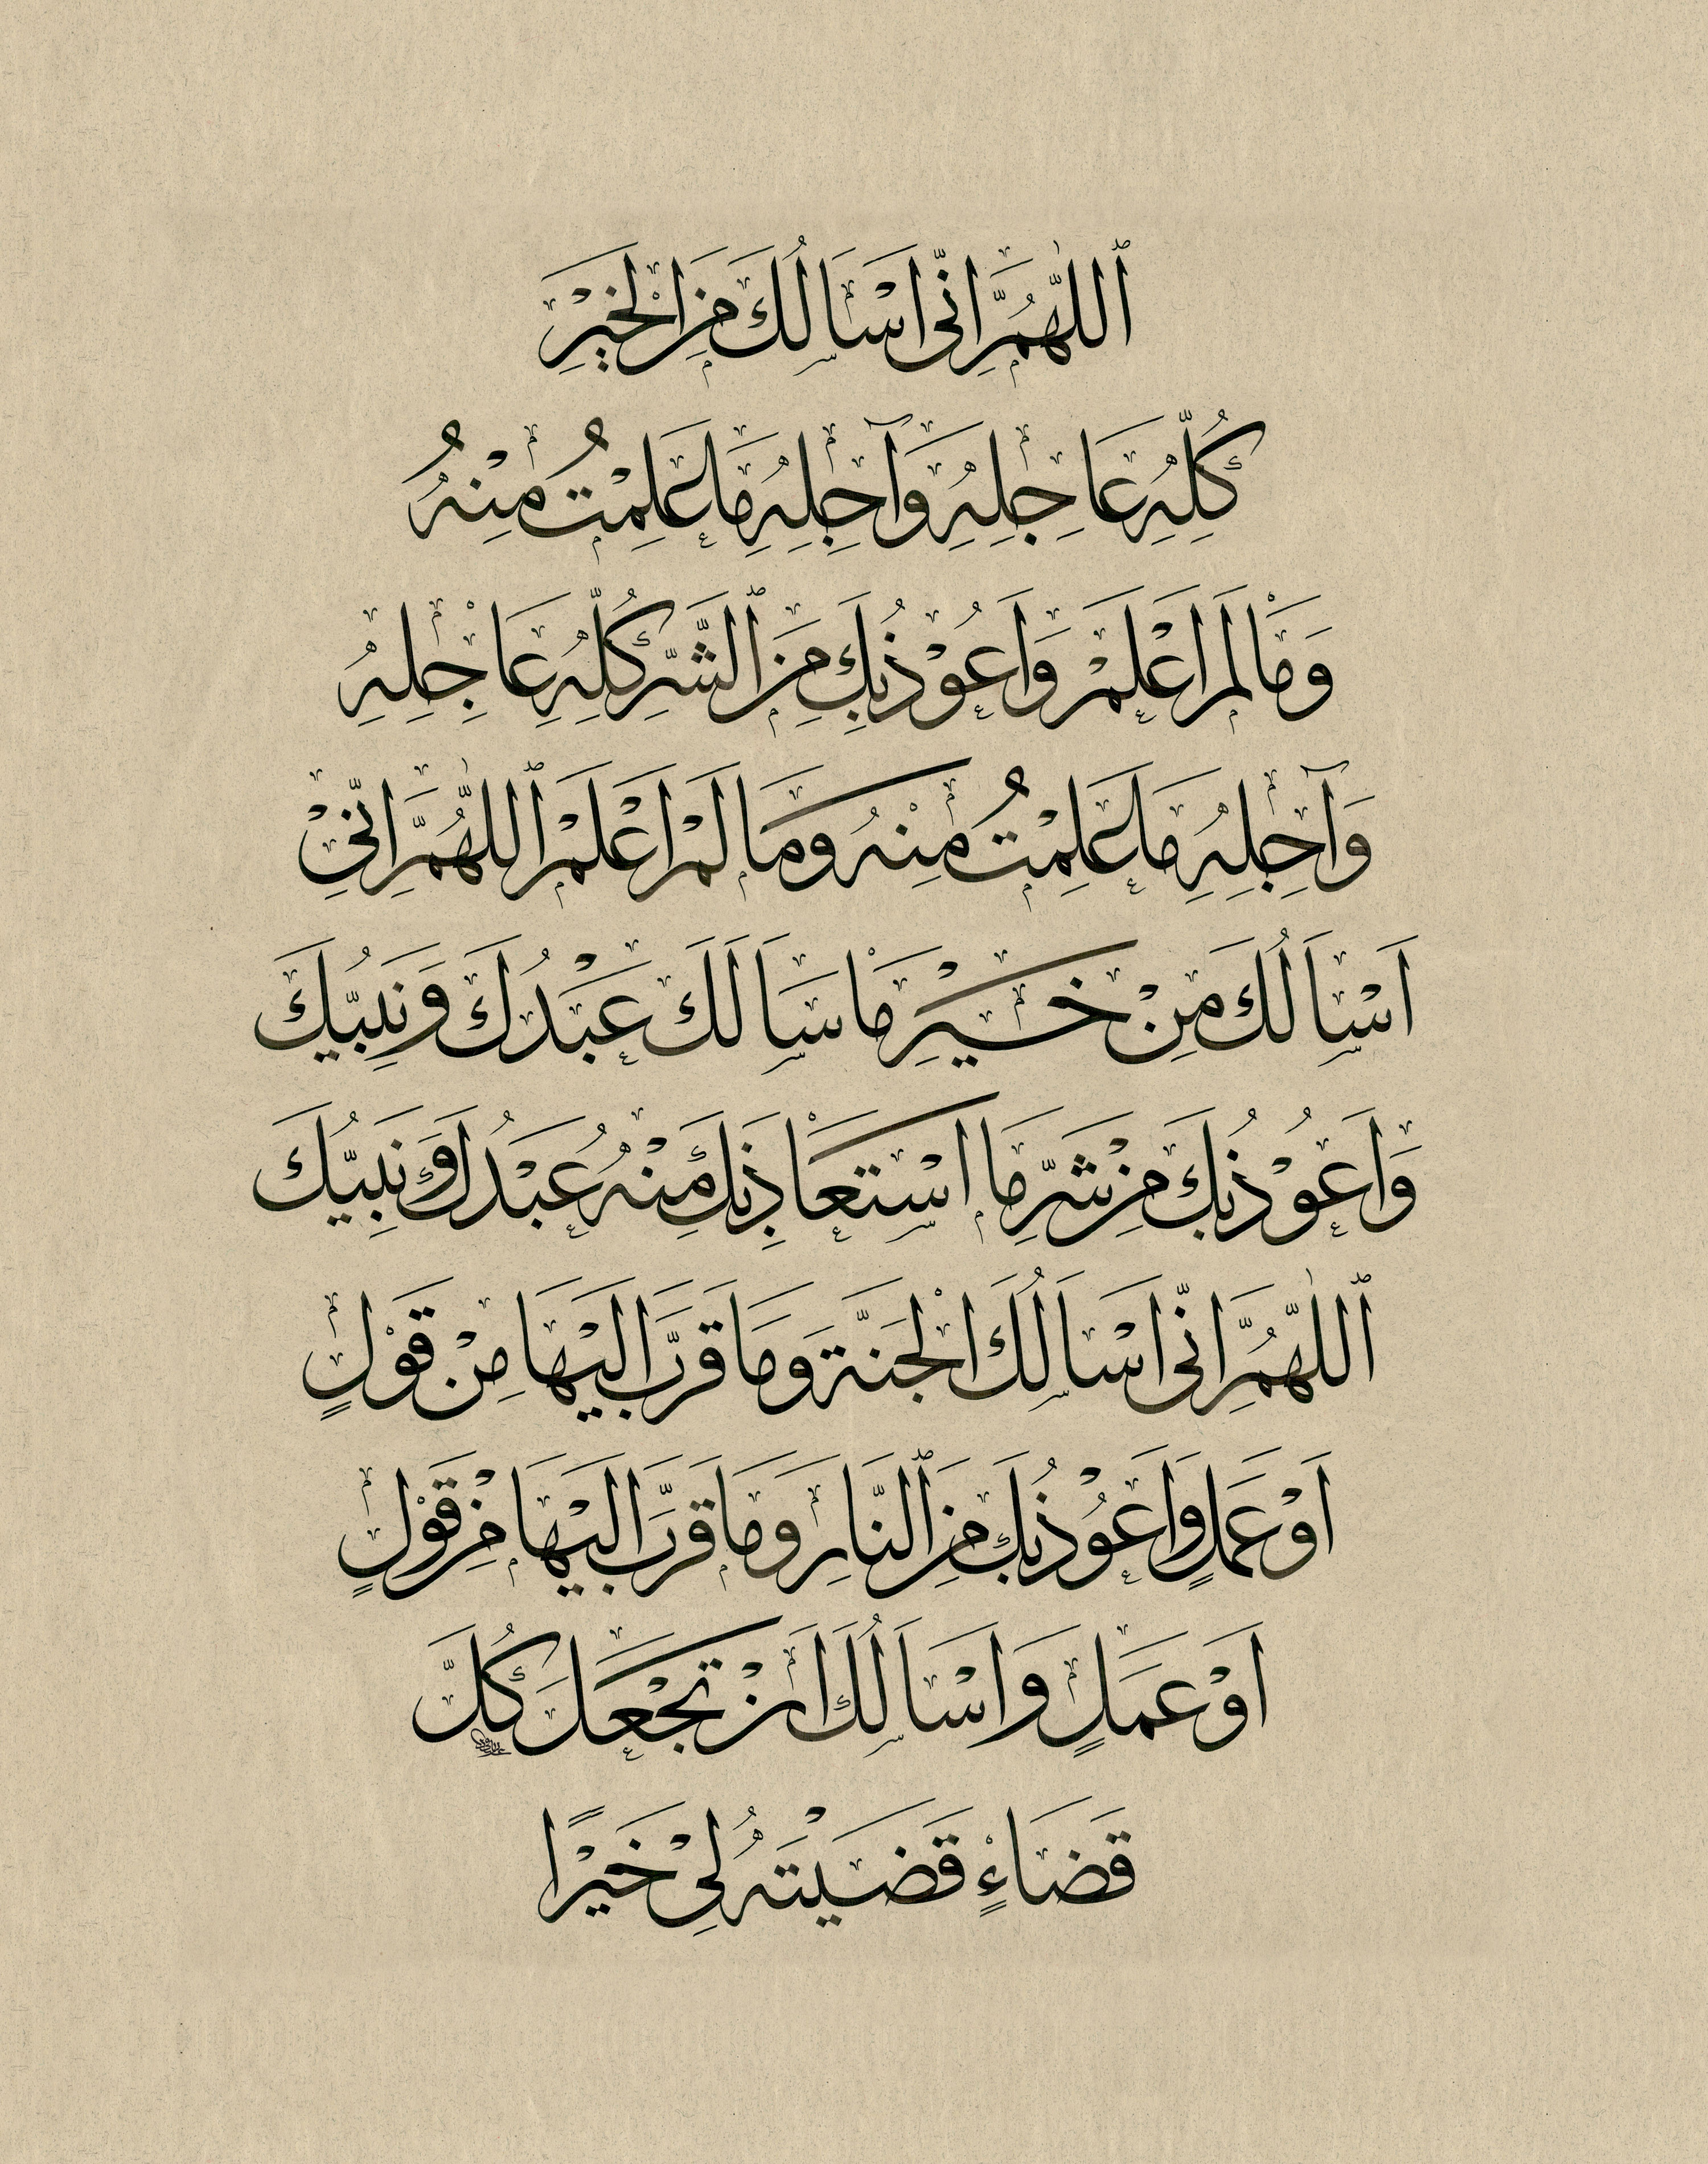 ٱللّٰهُمَّ اِنّٖى اَسْاَلُكَ مِنَ الْخَيْرِ
كُلِّهِ عَاجِلِهِ وَآجِلِهِ مَا عَلِمْتُ مِنْهُ
وَمَا لَمْ اَعْلَمْ وَاَعُوْذُ بِكَ مِنَ ٱلشَّرِّ كُلِّهِ عَاجِلِهِ
وَآجِلِهِ مَا عَلِمْتُ مِنْهُ وَمَا لَمْ اَعْلَمْ ٱللّٰهُمَّ اِنِّيْ
اَسْاَلُكَ مِنْ خَيْرِ مَا سَاَلَكَ عَبْدُكَ وَنَبِيُّكَ
وَاَعُوْذُ بِكَ مِنْ شَرِّ مَا اسْتَعَاذَ بِكَ مِنْهُ عَبْدُكَ وَنَبِيُّكَ
ٱللّٰهُمَّ اِنّٖى اَسْاَلُكَ الْجَنَّةَ وَمَا قَرَّبَ اِلَيْهَا مِنْ قَوْلٍ
اَوْ عَمَلٍ وَاَعُوْذُ بِكَ مِنَ ٱلنَّارِ وَمَا قَرَّبَ اِلَيْهَا مِنْ قَوْلٍ
اَوْ عَمَلٍ وَاَسْاَلُكَ اَنْ تَجْعَلَ كُلَّ
قَضَاءٍ قَضَيْتَهُ لِيْ خَيْرًا